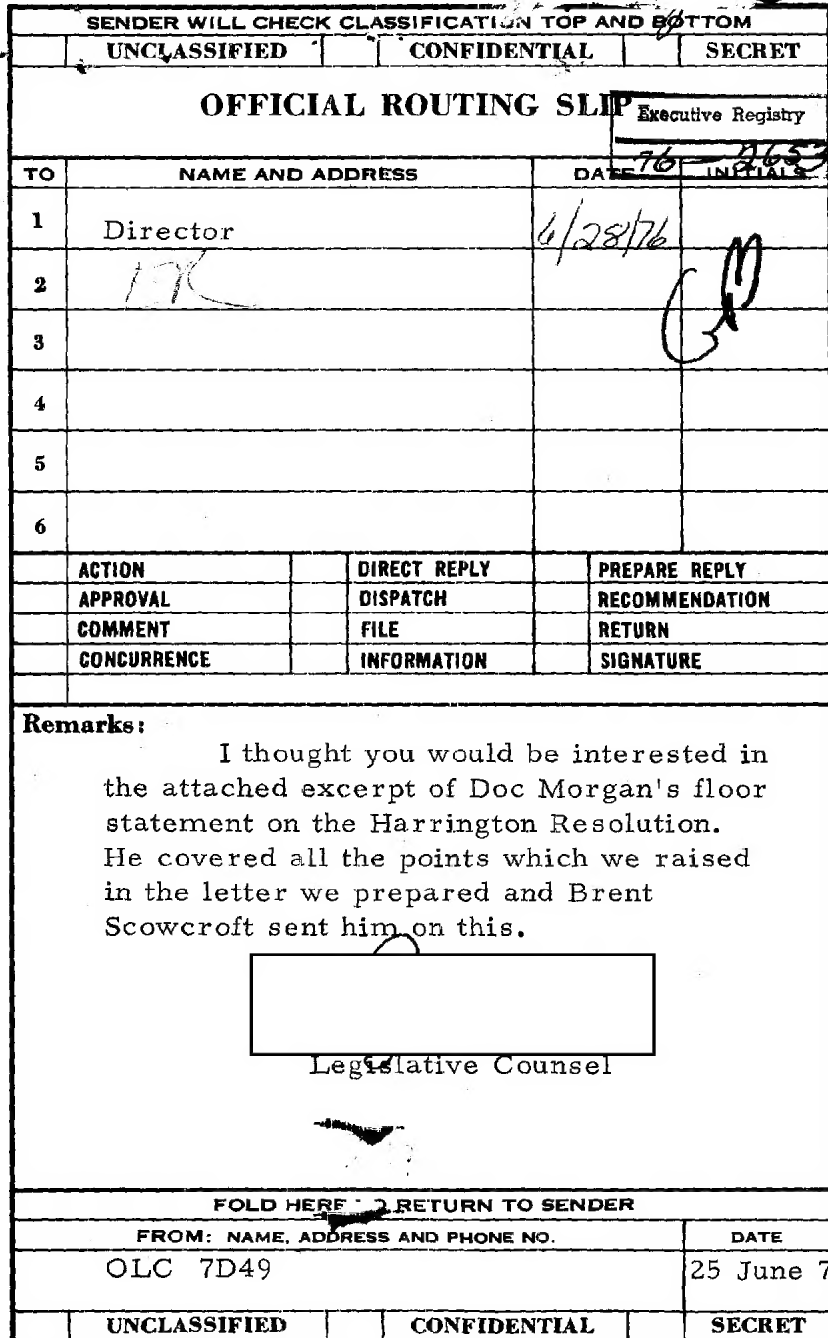 SENDER WILL CHECK CLASSIFICATION TOP AND BOTTOM
UNCLASSIFIED CONFIDENTIAL SECRET
OFFICIAL ROUTING SLIP
Executive Registry
76-2653
TO NAME AND ADDRESS DATE INITIALS
1 Director 6/28/76
2
3
4
5
6
ACTION DIRECT REPLY PREPARE REPLY
APPROVAL DISPATCH RECOMMENDATION
COMMENT FILE RETURN
CONCURRENCE INFORMATION SIGNATURE
Remarks:
I thought you would be interested in
the attached excerpt of Doc Morgan's floor
statement on the Harrington Resolution.
He covered all the points which we raised
in the letter we prepared and Brent
Scowcroft sent him on this.
Legislative Counsel
FOLD HERE TO RETURN TO SENDER
FROM: NAME, ADDRESS AND PHONE NO. DATE
OLC 7D49 25 June 7
UNCLASSIFIED CONFIDENTIAL SECRET